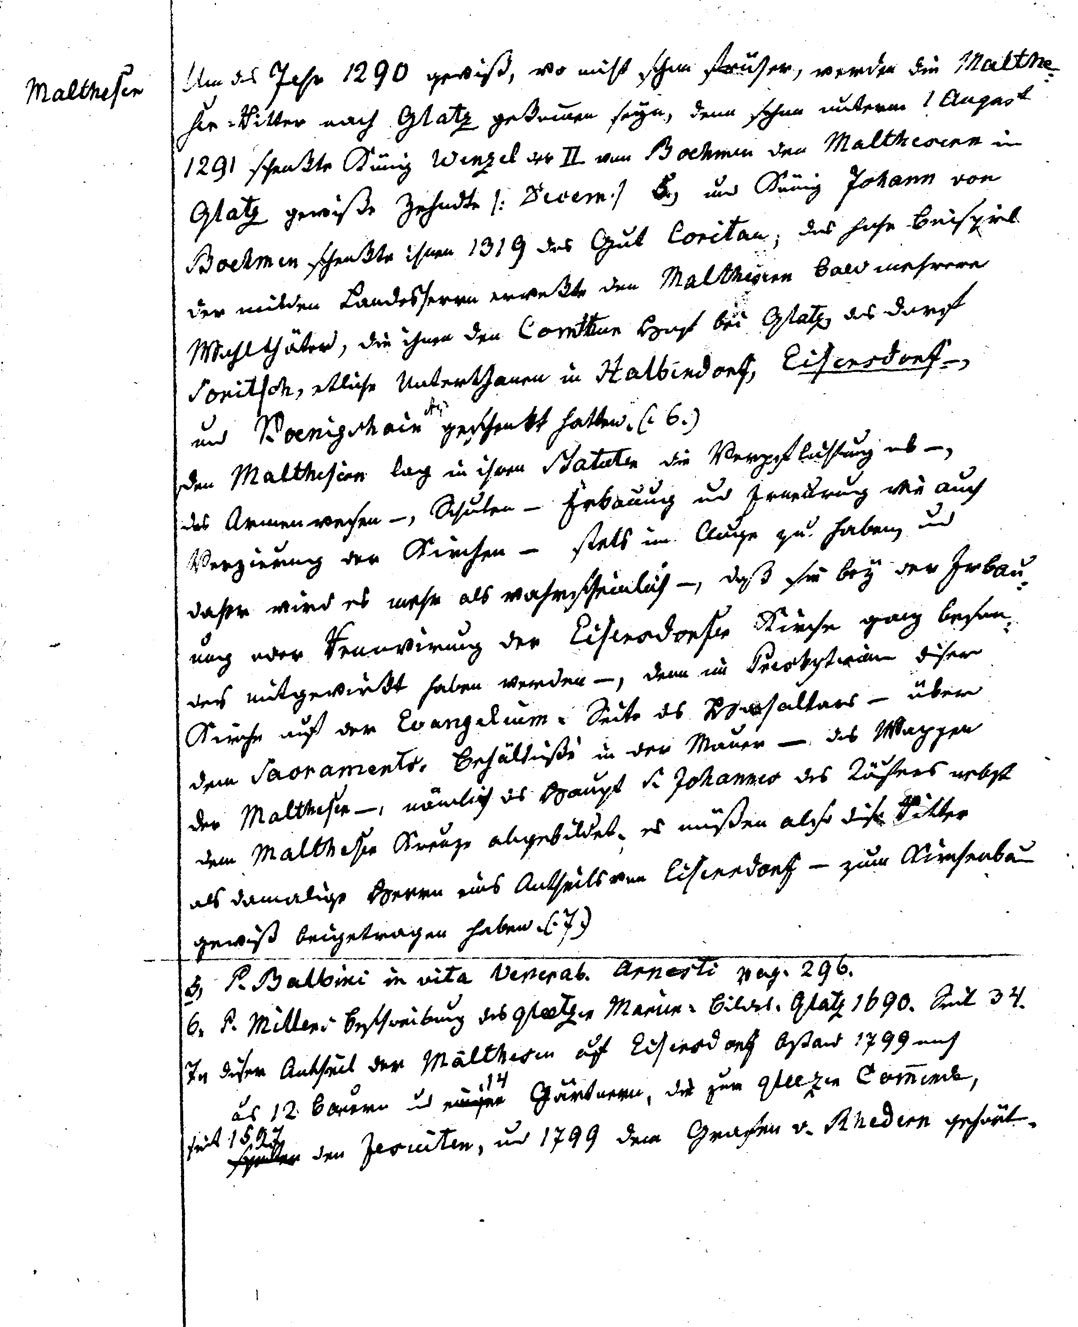 Malthesen
Um das Jahr 1290 gewiß, wo nicht schon früher, werden die Malthe-
ser-Ritter nach Glatz gekommen seyn, denn schon unterm 1 August
1291 schenkte König Wenzel der II von Boehmen den Malthesern in
Glatz gewisse Zehndte /: Decem :/ 5, und König Johann von
Boehmen schenkte ihnen 1319 das Gut Coritau; das hohe Beispiel
der milden Landesherrn erwekte den Malthesern bald mehrere
Wohlthäter, die ihnen den Hof bei Glatz, das Dorf
Soritsch, etliche Unterthanen in Halbendorf, Eisersdorf-,
und Koenigshain geschenkt hatten. (: 6.)
Den Malthesern lag in ihren Statuten die Verpflichtung ob -,
das Armenwesen -, Schulen - Erbauung und Erneurung wie auch
Verzierung der Kirchen - stets im Auge zu haben, und
daher wird es mehr als wahrscheinlich -, daß sie bey der Erbau-
ung oder Renovirung der Eisersdorfer Kirche ganz beson-
ders mitgewirkt haben werden -, denn im Presbyterium dieser
Kirche auf der Evangelium-Seite des Hochaltars - über
dem Sacraments-Behältniße in der Mauer - das Wappen
der Maltheser -, nämlich das Haupt S. Johannes des Täufers nebst
dem Maltheser Kreuze abgebildet. es müßen also diese Ritter
als damalige Herrn eines Antheils von Eisersdorf - zum Kirchenbau
gewiß beigetragen haben. (: 7.)
5, P. Balbini in vita Venerab. Arnesti pag. 296.
6. P. Millers Beschreibung des glatzer Marien-Bildes. Glatz 1690. Seit 34.
7, dieser Antheil der Malthesen auf Eisersdorf bestand 1799 noch
aus 12 Bauern und 14 Gärtnern, die zur glatzer Commende,
seit 1597 den Jesuiten, und 1799 dem Grafen v. Rhedern gehört.